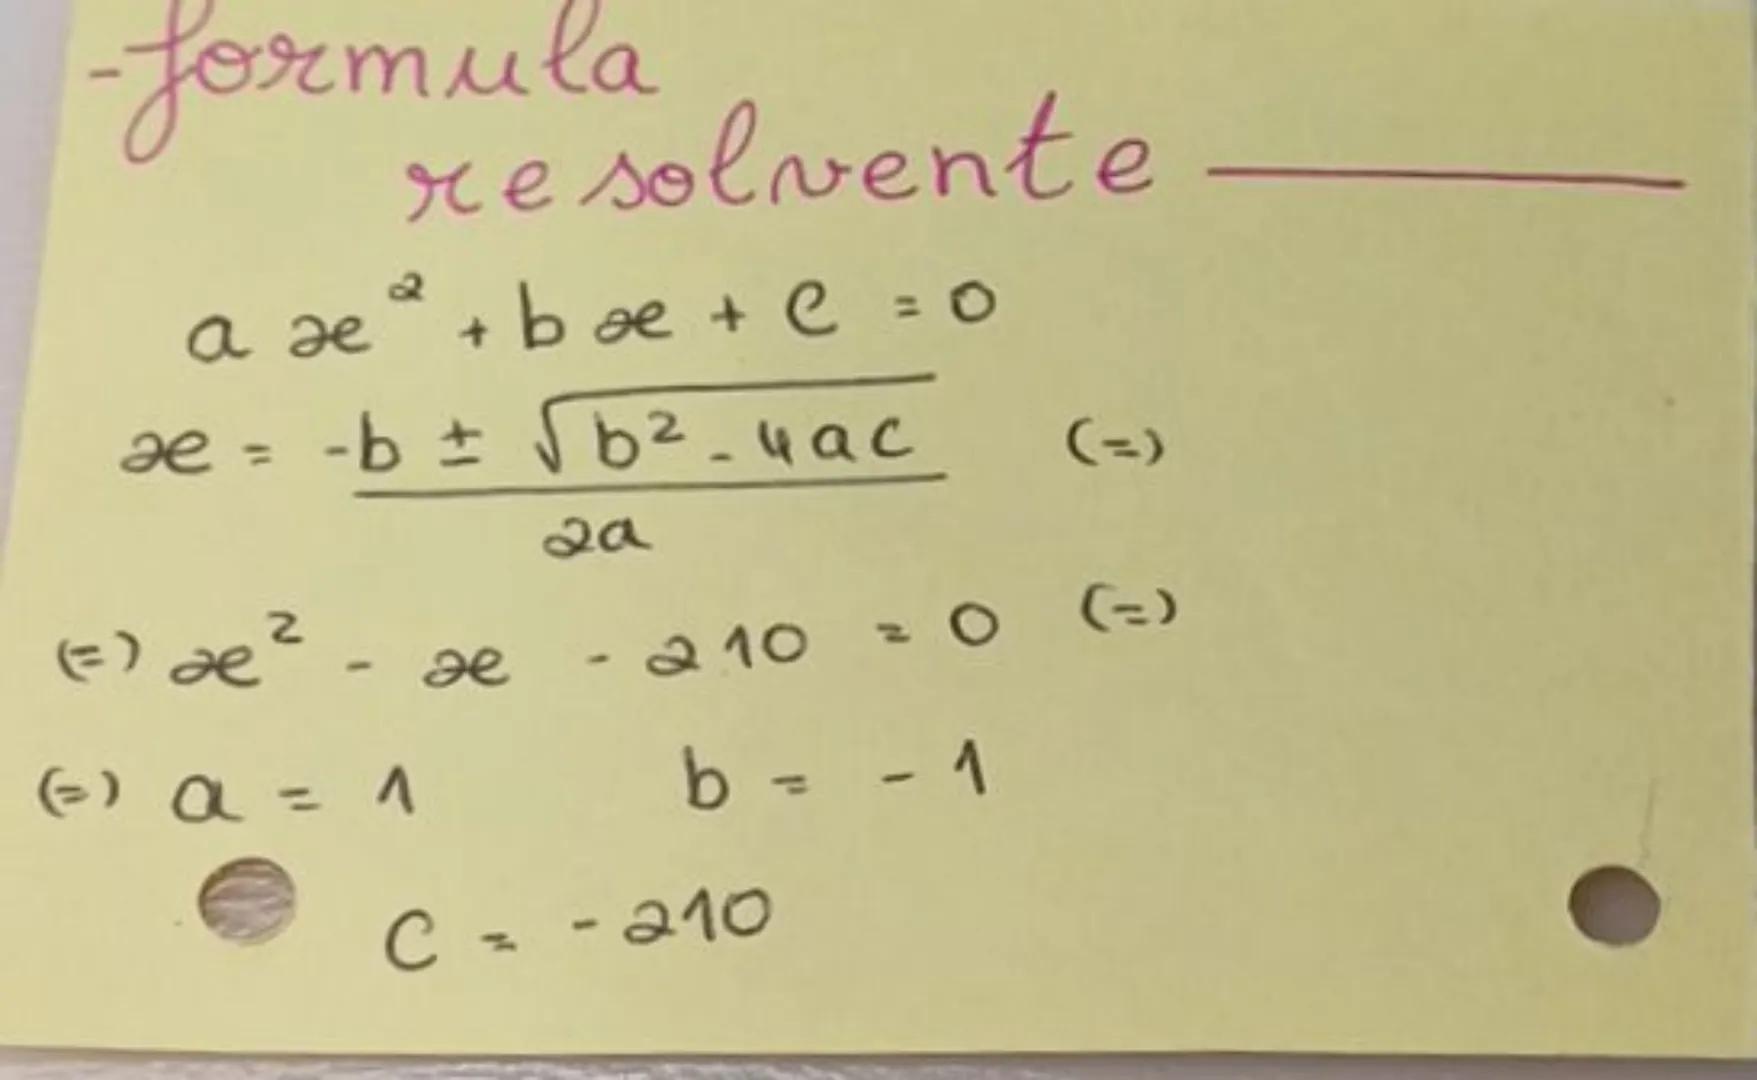 -formula
resolvente
ax² + bx + c = 0
x = -b ± √b² - 4ac (=)
2a
(=) x² - x - 210 = 0 (=)
(=) a = 1 b = - 1
C = - 210